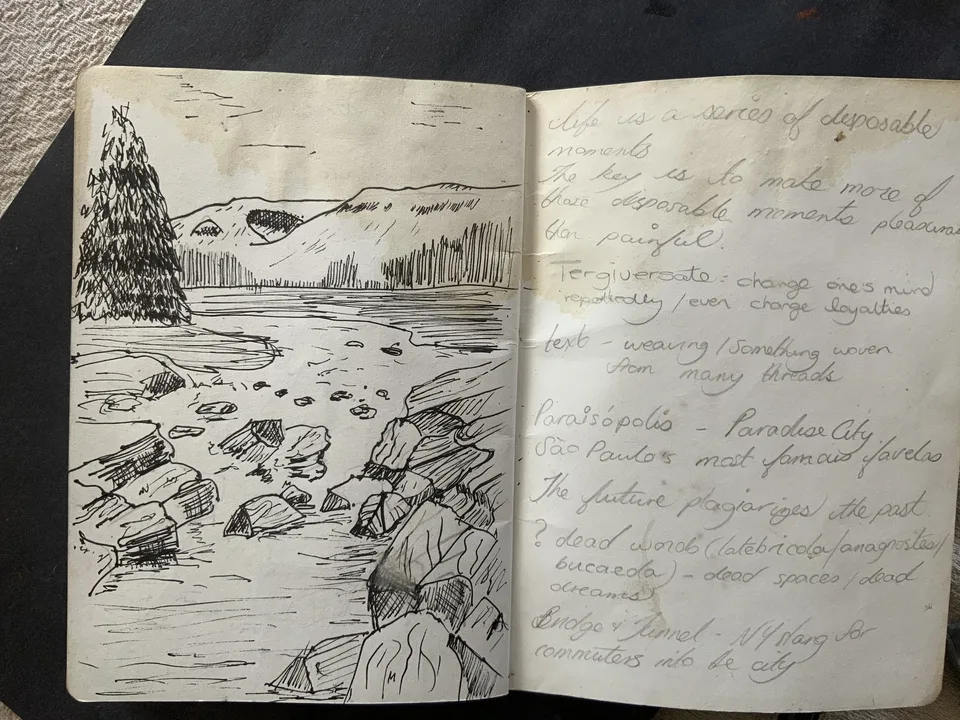 Life is a series of disposable
moments
The key is to make more of
those disposable moments
than painful.
Tergiversate : change one's mind
repeatedly / even change loyalties
text - weaving / something woven
from many threads
Paraisópolis - Paradise City
São Paulo's most famous favelas
The future plagiarizes the past
? dead words (latebricola/anagnostes/
bucaeda) - dead spaces / dead
dreams
Bridge & Tunnel - NY slang for
commuters into the city
M